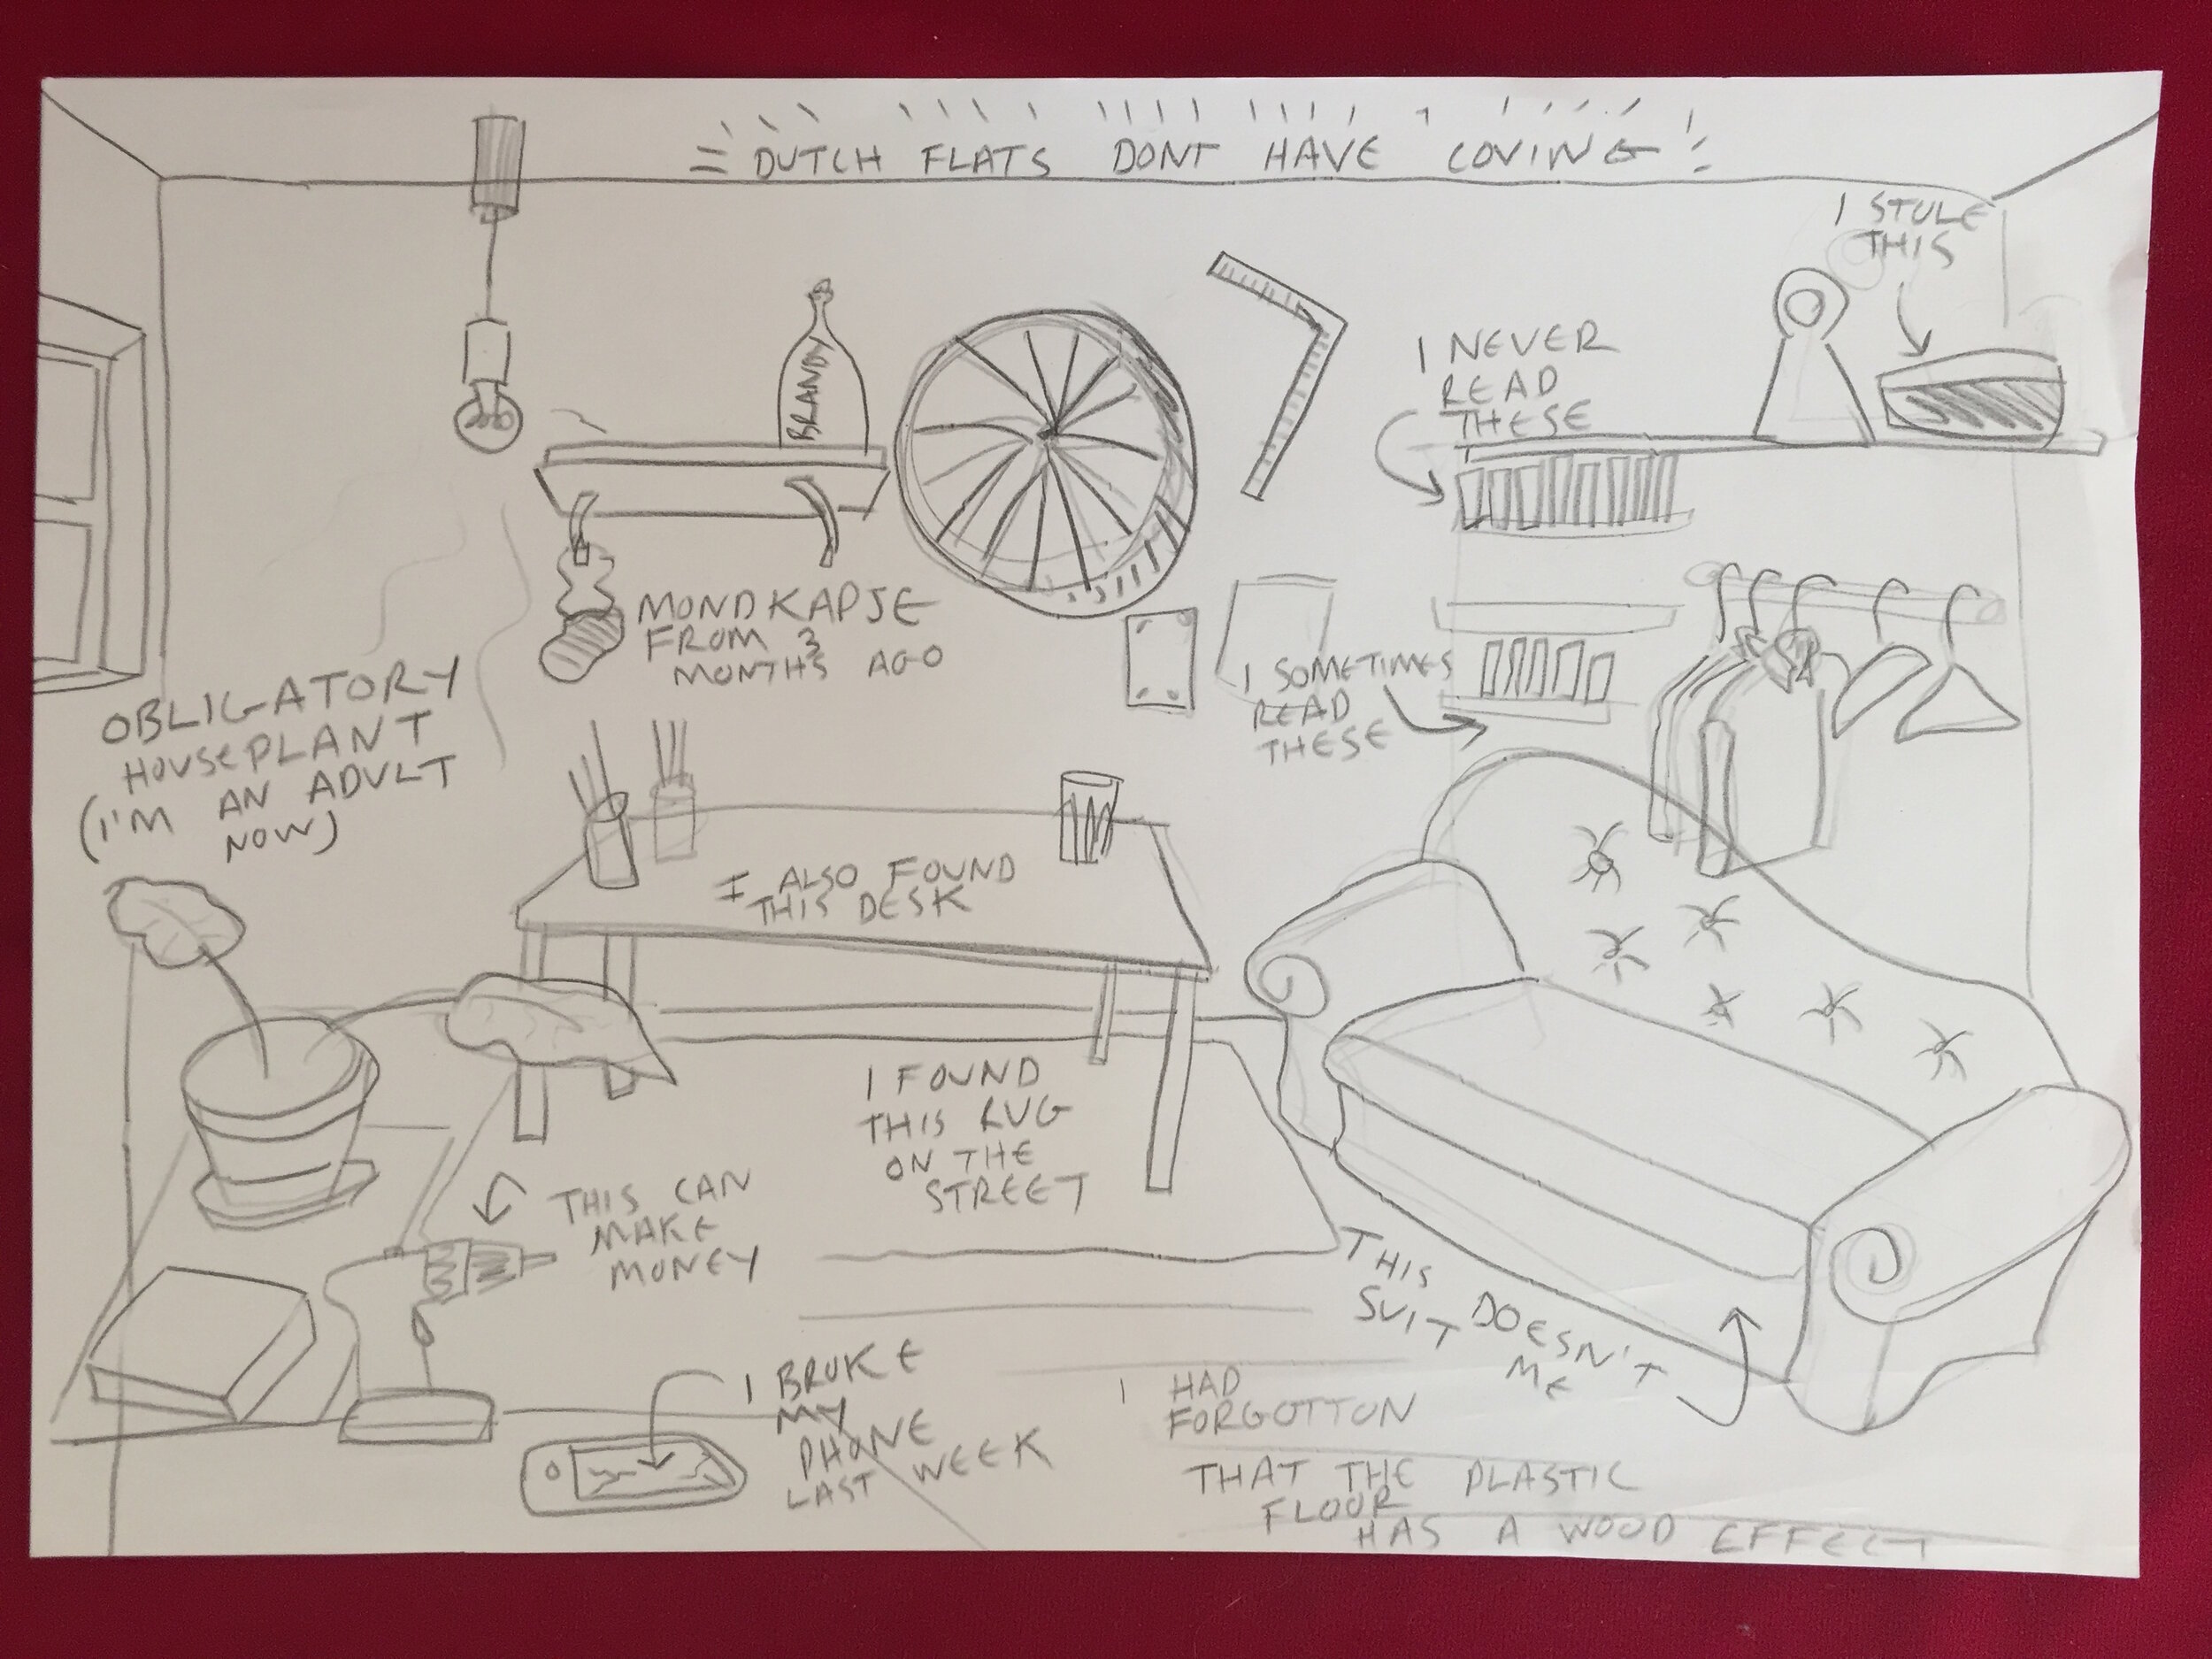 DUTCH FLATS DONT HAVE COVING
I STOLE
THIS
BRANDY
I NEVER
READ
THESE
MONDKAPJE
FROM 3
MONTHS AGO
I SOMETIMES
READ
THESE
OBLIGATORY
HOUSEPLANT
(I'M AN ADULT
NOW)
I ALSO FOUND
THIS DESK
I FOUND
THIS RUG
ON THE
STREET
THIS CAN
MAKE
MONEY
THIS DOESN'T
SUIT ME
I BROKE
MY
PHONE
LAST WEEK
I HAD
FORGOTTON
THAT THE PLASTIC
FLOOR
HAS A WOOD EFFECT